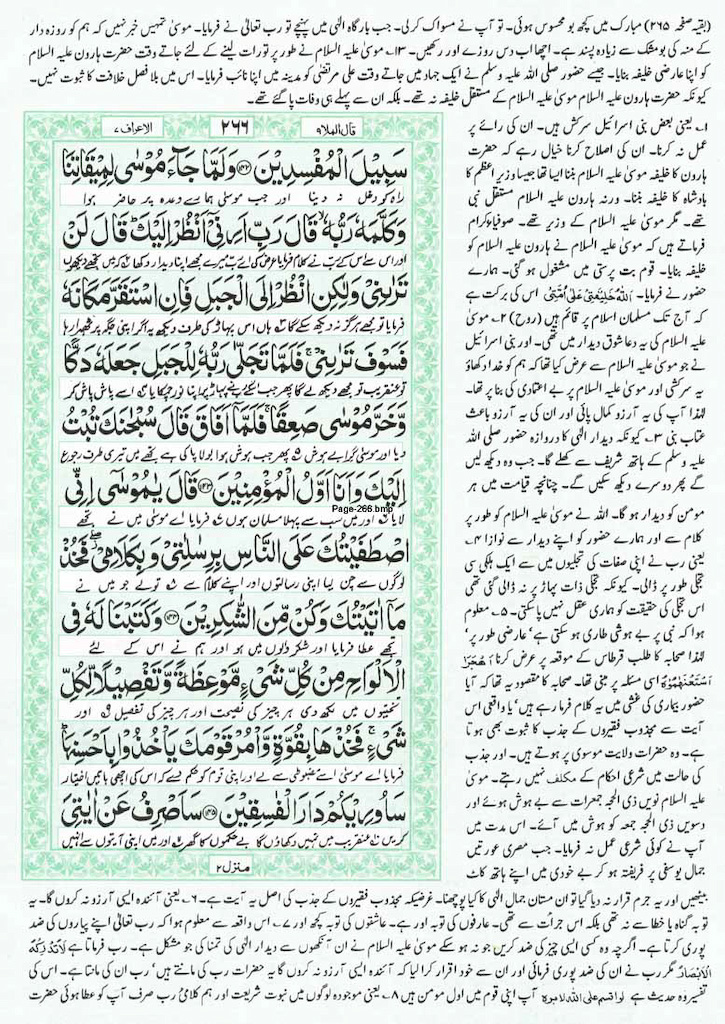 (بقیہ صفحہ ۲۶۵) مبارک میں کچھ بو محسوس ہوئی۔ تو آپ نے مسواک کرلی۔ جب بارگاہ الٰہی میں پہنچے تو رب تعالیٰ نے فرمایا۔ موسیٰ تمہیں خبر نہیں کہ ہم کو روزہ دار
کے منہ کی بو مشک سے زیادہ پسند ہے۔ اچھا اب دس روزے اور رکھیں۔ ۱۳۔ موسیٰ علیہ السلام نے طور پر تورات لینے کے لئے جاتے وقت حضرت ہارون علیہ السلام
کو اپنا عارضی خلیفہ بنایا۔ جیسے حضور صلی اللہ علیہ وسلم نے ایک جہاد میں جاتے وقت علی مرتضیٰ کو مدینہ میں اپنا نائب فرمایا۔ اس میں بلا فصل خلافت کا ثبوت نہیں۔
کیونکہ حضرت ہارون علیہ السلام موسیٰ علیہ السلام کے مستقل خلیفہ نہ تھے۔ بلکہ ان سے پہلے ہی وفات پا گئے تھے۔
قال الملا۹
۲۶۶
الاعراف ۷
سَبِيلَ الْمُفْسِدِينَ ﴿۱۴۲﴾ وَلَمَّا جَآءَ مُوسَىٰ لِمِيقَاتِنَا
راہ کو دخل نہ دینا اور جب موسیٰ ہمارے وعدہ پر حاضر ہوا
وَكَلَّمَهُ رَبُّهُ قَالَ رَبِّ اَرِنِىْ اَنْظُرْ اِلَيْكَ قَالَ لَنْ
اور اس سے اس کے رب نے کلام فرمایا عرض کی اے رب میرے مجھے اپنا دیدار دکھا کہ میں تجھے دیکھوں
تَرٰىنِىْ وَلٰكِنِ انْظُرْ اِلَى الْجَبَلِ فَاِنِ اسْتَقَرَّ مَكَانَهٗ
فرمایا تو مجھے ہرگز نہ دیکھ سکے گا ہاں اس پہاڑ کی طرف دیکھ یہ اگر اپنی جگہ پر ٹھہرا رہا
فَسَوْفَ تَرٰىنِىْ فَلَمَّا تَجَلّٰى رَبُّهٗ لِلْجَبَلِ جَعَلَهٗ دَكًّا
تو عنقریب تو مجھے دیکھ لے گا پھر جب اسکے رب نے پہاڑ پر اپنا نور چمکایا اسے پاش پاش کر
وَّخَرَّ مُوْسٰى صَعِقًا فَلَمَّآ اَفَاقَ قَالَ سُبْحٰنَكَ تُبْتُ
دیا اور موسیٰ گرا بے ہوش پھر جب ہوش ہوا بولا پاکی ہے تجھے میں تیری طرف رجوع
اِلَيْكَ وَاَنَا اَوَّلُ الْمُؤْمِنِيْنَ ﴿۱۴۳﴾ قَالَ يٰمُوْسٰى اِنِّى
لایا اور میں سب سے پہلا مسلمان ہوں فرمایا اے موسیٰ میں نے تجھے
Page-266.bmp
اصْطَفَيْتُكَ عَلَى النَّاسِ بِرِسٰلٰتِىْ وَبِكَلَامِىْ فَخُذْ
لوگوں سے چن لیا اپنی رسالتوں اور اپنے کلام سے تو لے جو میں نے
مَآ اٰتَيْتُكَ وَكُنْ مِّنَ الشّٰكِرِيْنَ ﴿۱۴۴﴾ وَكَتَبْنَا لَهٗ فِى
تجھے عطا فرمایا اور شکر والوں میں ہو اور ہم نے اس کے لئے
الْاَلْوَاحِ مِنْ كُلِّ شَىْءٍ مَّوْعِظَةً وَّتَفْصِيْلًا لِّكُلِّ
تختیوں میں لکھ دی ہر چیز کی نصیحت اور ہر چیز کی تفصیل اور
شَىْءٍ فَخُذْهَا بِقُوَّةٍ وَّاْمُرْ قَوْمَكَ يَاْخُذُوْا بِاَحْسَنِهَا
فرمایا اے موسیٰ اسے مضبوطی سے لے اور اپنی قوم کو حکم دے کہ اس کی اچھی باتیں اختیار
سَاُورِيْكُمْ دَارَ الْفٰسِقِيْنَ ﴿۱۴۵﴾ سَاَصْرِفُ عَنْ اٰيٰتِىَ
کریں عنقریب میں تمہیں دکھاؤں گا بے حکموں کا گھر اور میں اپنی آیتوں سے انہیں
منزل ۲
۱۔ یعنی بعض بنی اسرائیل سرکش ہیں۔ ان کی رائے پر
عمل نہ کرنا۔ ان کی اصلاح کرنا خیال رہے کہ حضرت
ہارون کا خلیفہ موسیٰ علیہ السلام بننا ایسا تھا جیسا وزیر اعظم کا
بادشاہ کا خلیفہ بننا۔ ورنہ ہارون علیہ السلام مستقل نبی
تھے۔ مگر موسیٰ علیہ السلام کے وزیر تھے۔ صوفیاء کرام
فرماتے ہیں کہ موسیٰ علیہ السلام نے ہارون علیہ السلام کو
خلیفہ بنایا۔ قوم بت پرستی میں مشغول ہو گئی۔ ہمارے
حضور نے فرمایا۔ اَللّٰهُ خَلِيْفَتِيْ عَلٰى اُمَّتِيْ اس کی برکت ہے
کہ آج تک مسلمان اسلام پر قائم ہیں (روح) ۲۔ موسیٰ
علیہ السلام کی یہ دعا شوق دیدار میں تھی۔ اور بنی اسرائیل
نے جو موسیٰ علیہ السلام سے عرض کیا تھا کہ ہم کو خدا دکھاؤ
یہ سرکشی اور موسیٰ علیہ السلام پر بے اعتمادی کی بنا پر تھا۔
لہٰذا آپ کی یہ آرزو کمال پائی اور ان کی یہ آرزو باعث
عتاب بنی ۳۔ کیونکہ دیدار الٰہی کا دروازہ حضور صلی اللہ
علیہ وسلم کے ہاتھ شریف سے کھلے گا۔ جب وہ دیکھ لیں
گے پھر دوسرے دیکھ سکیں گے۔ چنانچہ قیامت میں ہر
مومن کو دیدار ہو گا۔ اللہ نے موسیٰ علیہ السلام کو طور پر
کلام سے اور ہمارے حضور کو اپنے دیدار سے نوازا ۴۔
یعنی رب نے اپنی صفات کی تجلیوں میں سے ایک ہلکی سی
تجلی طور پر ڈالی۔ کیونکہ تجلی ذات پہاڑ پر نہ ڈالی گئی تھی
اس تجلی کی حقیقت کو ہماری عقل نہیں پا سکتی۔ ۵۔ معلوم
ہوا کہ نبی پر بے ہوشی طاری ہو سکتی ہے' عارضی طور پر'
لہٰذا صحابہ کا طلب قرطاس کے موقعہ پر عرض کرنا اَهَجَرَ
اِسْتَفْهِمُوْهُ اسی مسئلہ پر مبنی تھا۔ صحابہ کا مقصود یہ تھا کہ آیا
حضور بیماری کی غشی میں یہ کلام فرما رہے ہیں' یا واقعی اس
آیت سے مجذوب فقیروں کے جذب کا ثبوت بھی ہوتا
ہے۔ وہ حضرات ولایت موسوی پر ہوتے ہیں۔ اور جذب
کی حالت میں شرعی احکام کے مکلف نہیں رہتے۔ موسیٰ
علیہ السلام نویں ذی الحجہ جمعرات سے بے ہوش ہوئے اور
دسویں ذی الحجہ جمعہ کو ہوش میں آئے۔ اس مدت میں
آپ نے کوئی شرعی عمل نہ فرمایا۔ جب مصری عورتیں
جمال یوسفی پر فریفتہ ہو کر بے خودی میں اپنے ہاتھ کاٹ
بیٹھیں اور یہ جرم قرار نہ دیا گیا تو ان مستان جمال الٰہی کا کیا پوچھنا۔ غرضیکہ مجذوب فقیروں کے جذب کی اصل یہ آیت ہے۔ ۶۔ یعنی آئندہ ایسی آرزو نہ کروں گا۔ یہ
توبہ گناہ یا خطا سے نہ تھی بلکہ اس جرأت سے تھی۔ عارفوں کی توبہ اور ہے۔ عاشقوں کی توبہ کچھ اور ۷۔ اس واقعہ سے معلوم ہوا کہ رب تعالیٰ اپنے پیاروں کی ضد
پوری کرتا ہے۔ اگرچہ وہ کسی ایسی چیز کی ضد کریں جو نہ ہو سکے موسیٰ علیہ السلام نے ان آنکھوں سے دیدار الٰہی کی تمنا کی جو مشکل ہے۔ رب فرماتا ہے لَا تُدْرِكُهُ
الْاَبْصَارُ مگر رب نے ان کی ضد پوری فرمائی اور ان سے خود اقرار کرا لیا کہ آئندہ ایسی آرزو نہ کروں گا یہ حضرات رب کی مانتے ہیں' رب ان کی مانتا ہے۔ اس کی
تفسیر وہ حدیث ہے لو اقسم علی اللہ لابرہ آپ اپنی قوم میں اول مومن ہیں ۸۔ یعنی موجودہ لوگوں میں نبوت شریعت اور ہم کلامیٔ رب صرف آپ کو عطا ہوئی حضرت